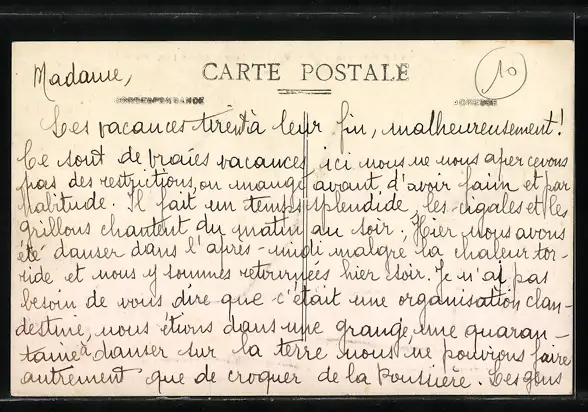 Madame,
CARTE POSTALE
10
CORRESPONDANCE
ADRESSE
Les vacances tirent à leur fin, malheureusement!
Ce sont de vraies vacances, ici nous ne nous apercevons
pas des restrictions, on mange avant d'avoir faim et par
habitude. Il fait un temps splendide, les cigales et les
grillons chantent du matin au soir; Hier, nous avons
été danser dans l'après-midi malgré la chaleur tor-
ride et nous y sommes retournées hier soir. Je n'ai pas
besoin de vous dire que c'était une organisation clan-
destine, nous étions dans une grange, une quaran-
taine à danser sur la terre nous ne pouvions faire
autrement que de croquer de la poussière. Les gens